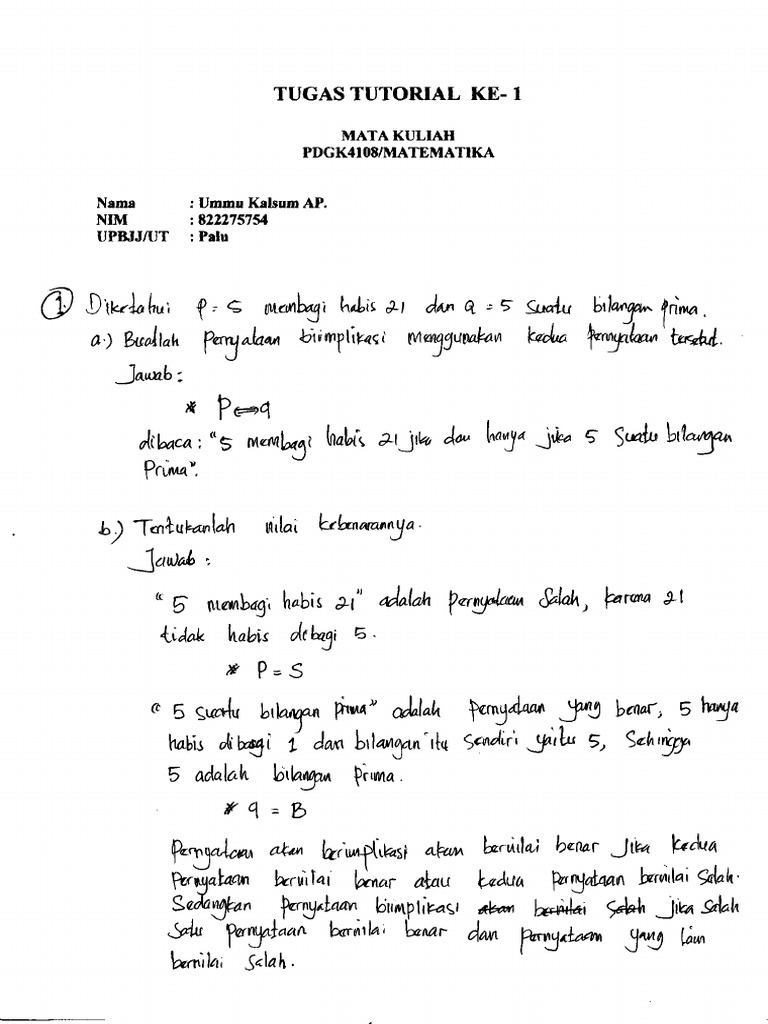 TUGAS TUTORIAL KE- 1
MATA KULIAH
PDGK4108/MATEMATIKA
Nama : Ummu Kalsum AP.
NIM : 822275754
UPBJJ/UT : Palu
1. Diketahui P = 5 membagi habis 21 dan Q = 5 suatu bilangan prima.
a.) Buatlah pernyataan biimplikasi menggunakan kedua pernyataan tersebut.
Jawab :
* P ⇔ q
dibaca : "5 membagi habis 21 jika dan hanya jika 5 suatu bilangan
Prima".
b.) Tentukanlah nilai kebenarannya.
Jawab :
"5 membagi habis 21" adalah pernyataan salah, karena 21
tidak habis debagi 5.
* P = S
"5 suatu bilangan prima" adalah pernyataan yang benar, 5 hanya
habis dibagi 1 dan bilangan itu sendiri yaitu 5, sehingga
5 adalah bilangan prima.
* q = B
Pernyataan akan berimplikasi akan bernilai benar jika kedua
pernyataan bernilai benar atau kedua pernyataan bernilai salah.
Sedangkan pernyataan biimplikasi akan bernilai salah jika salah
satu pernyataan bernilai benar dan pernyataan yang lain
bernilai salah.